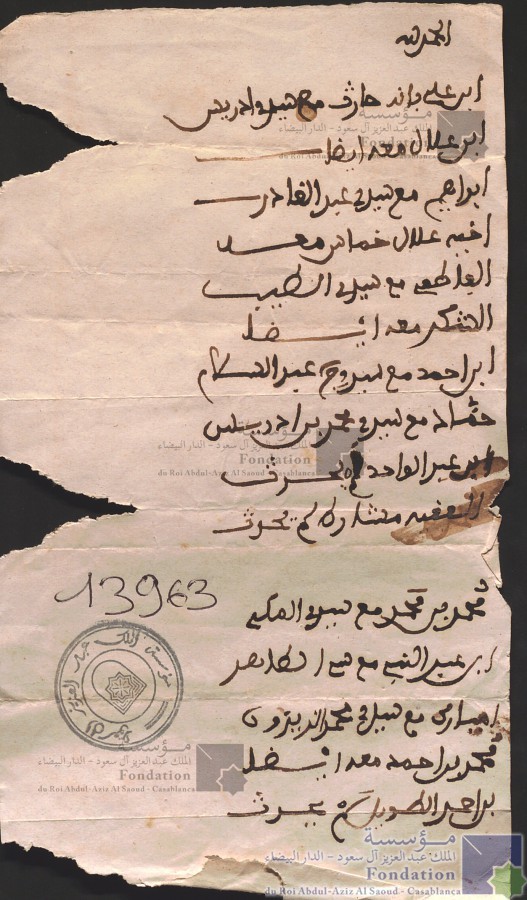 الحمد لله
ابن علي حارث مع سيدي ادريس
ابن علال معه ايضا
ابراهيم مع سيدي عبد القادر
اخيه علال خماس معه
الفاطمي مع سيدي الطيب
معه ايضا
ابن احمد مع سيدي عبد السلام
مع سيدي محمد بن ادريس
ابن عبد الواحد لم يحرث
مشارك لم يحرث
13963
محمد بن محمد مع سيدي المكي
ابن عبد النبي مع سي الطاهر
امبارك مع سيدي محمد
محمد بن احمد معه ايضا
بن احمد الطويل لم يحرث
مؤسسة
الملك عبد العزيز آل سعود - الدار البيضاء
Fondation
du Roi Abdul-Aziz Al Saoud - Casablanca